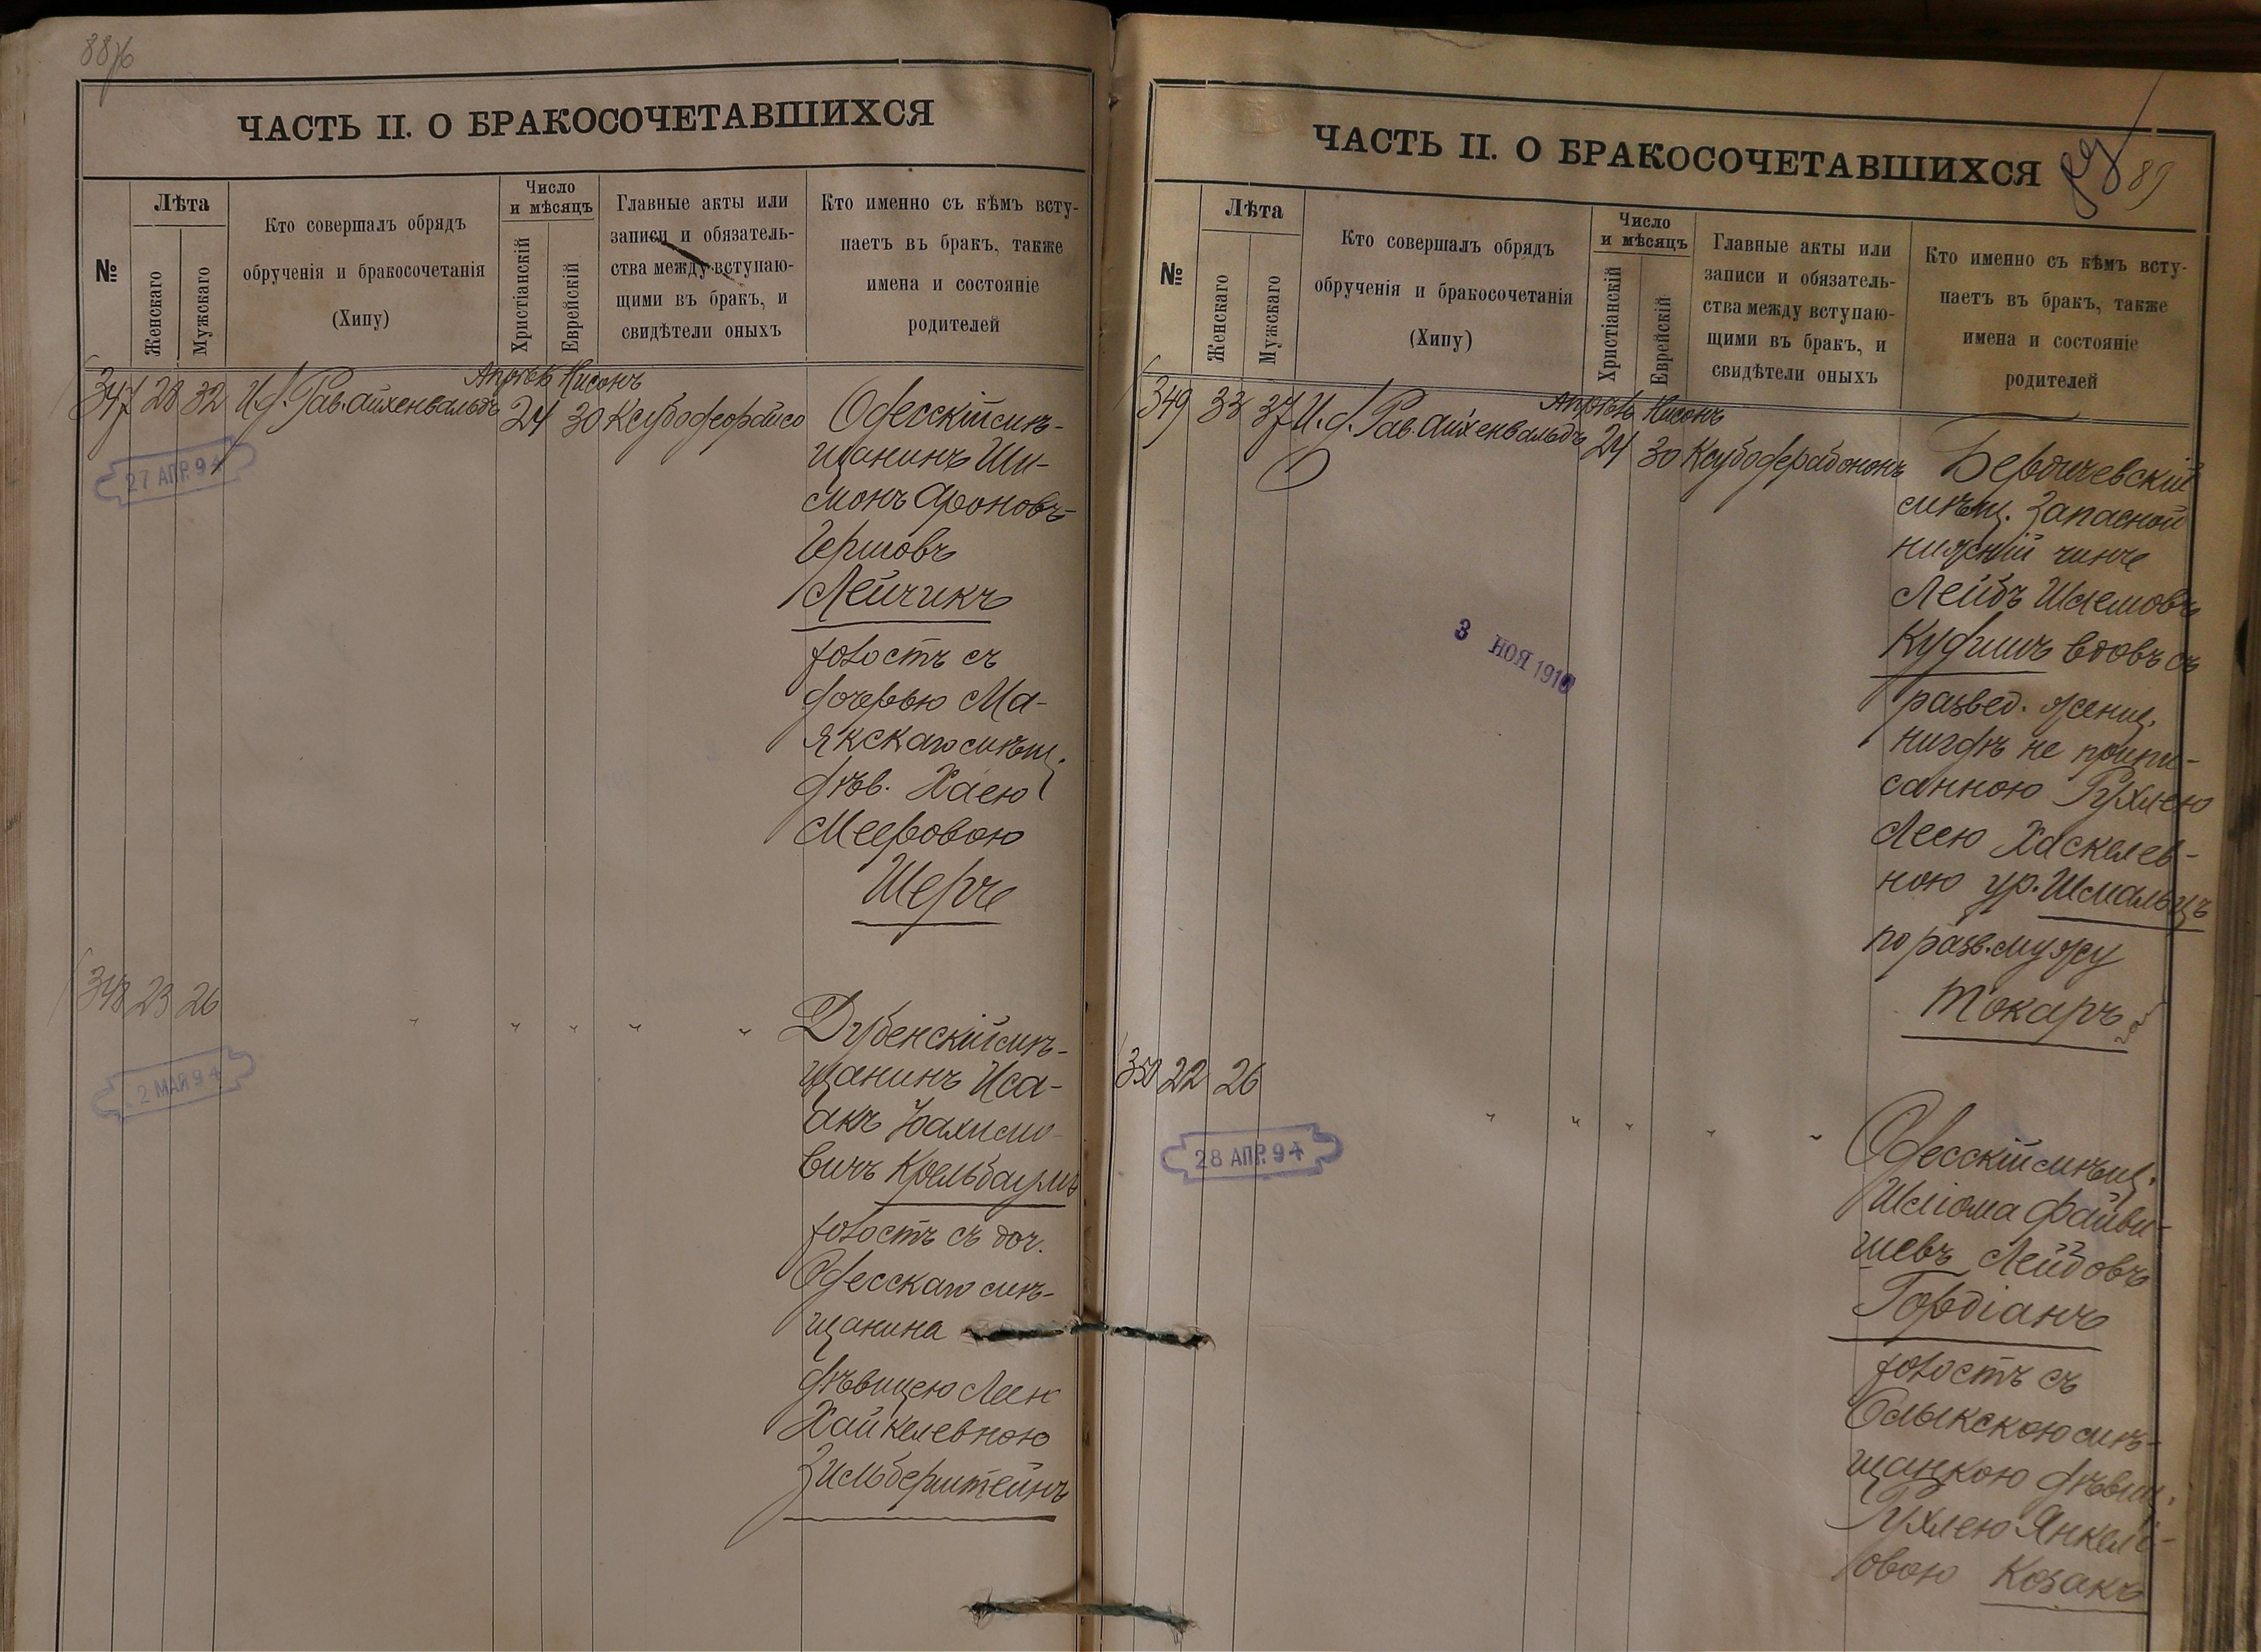 88об
ЧАСТЬ II. О БРАКОСОЧЕТАВШИХСЯ
№
Лѣта
Женскаго
Мужскаго
Кто совершалъ обрядъ
обрученія и бракосочетанія
(Хипу)
Число
и мѣсяцъ
Христіанскій
Еврейскій
Главные акты или
записи и обязатель-
ства между вступаю-
щими въ бракъ, и
свидѣтели оныхъ
Кто именно съ кѣмъ всту-
паетъ въ бракъ, также
имена и состояніе
родителей
Апрѣль Нисонъ
347 28 32 И.д. Рав. Айхенвальдъ 24 30 Ксубодеорайсо
Одесскій мѣ-
щанинъ Ши-
монъ Ароновъ-
Гершовъ
Лейчикъ
27 АПР. 94
холостъ съ
дочерью Ма-
якскаго мѣщ.
дѣв. Хаею
Мееровою
Шеръ
348 23 26 " " " " "
Дубенскій мѣ-
щанинъ Иса-
акъ
вичъ Крельбаумъ
2 МАЙ 94
холостъ съ доч.
Одесскаго мѣ-
щанина
дѣвицею Леею
Хайкелевною
Зильберштейнъ
ЧАСТЬ II. О БРАКОСОЧЕТАВШИХСЯ
89 89
№
Лѣта
Женскаго
Мужскаго
Кто совершалъ обрядъ
обрученія и бракосочетанія
(Хипу)
Число
и мѣсяцъ
Христіанскій
Еврейскій
Главные акты или
записи и обязатель-
ства между вступаю-
щими въ бракъ, и
свидѣтели оныхъ
Кто именно съ кѣмъ всту-
паетъ въ бракъ, также
имена и состояніе
родителей
Апрѣль Нисонъ
349 33 37 И.д. Рав. Айхенвальдъ 24 30 Ксубодерабононъ
Бердичевскій
мѣщ. Запасной
нижній чинъ
Лейбъ Шлемовъ
Кудишъ вдовъ съ
3 НОЯ 1910
развед. женщ.
нигдѣ не припи-
санною Рухлею
Леею Хаскелев-
ною ур. Шмальцъ
по разв. мужу
Токаръ
350 22 26 " " " " "
Одесскій мѣщ.
Шлiома Файви-
шевъ Лейбовъ
Гордіанъ
28 АПР. 94
холостъ съ
Олыкскою мѣ-
щанкою дѣвиц.
Рухлею Янкеле-
овою Козакъ